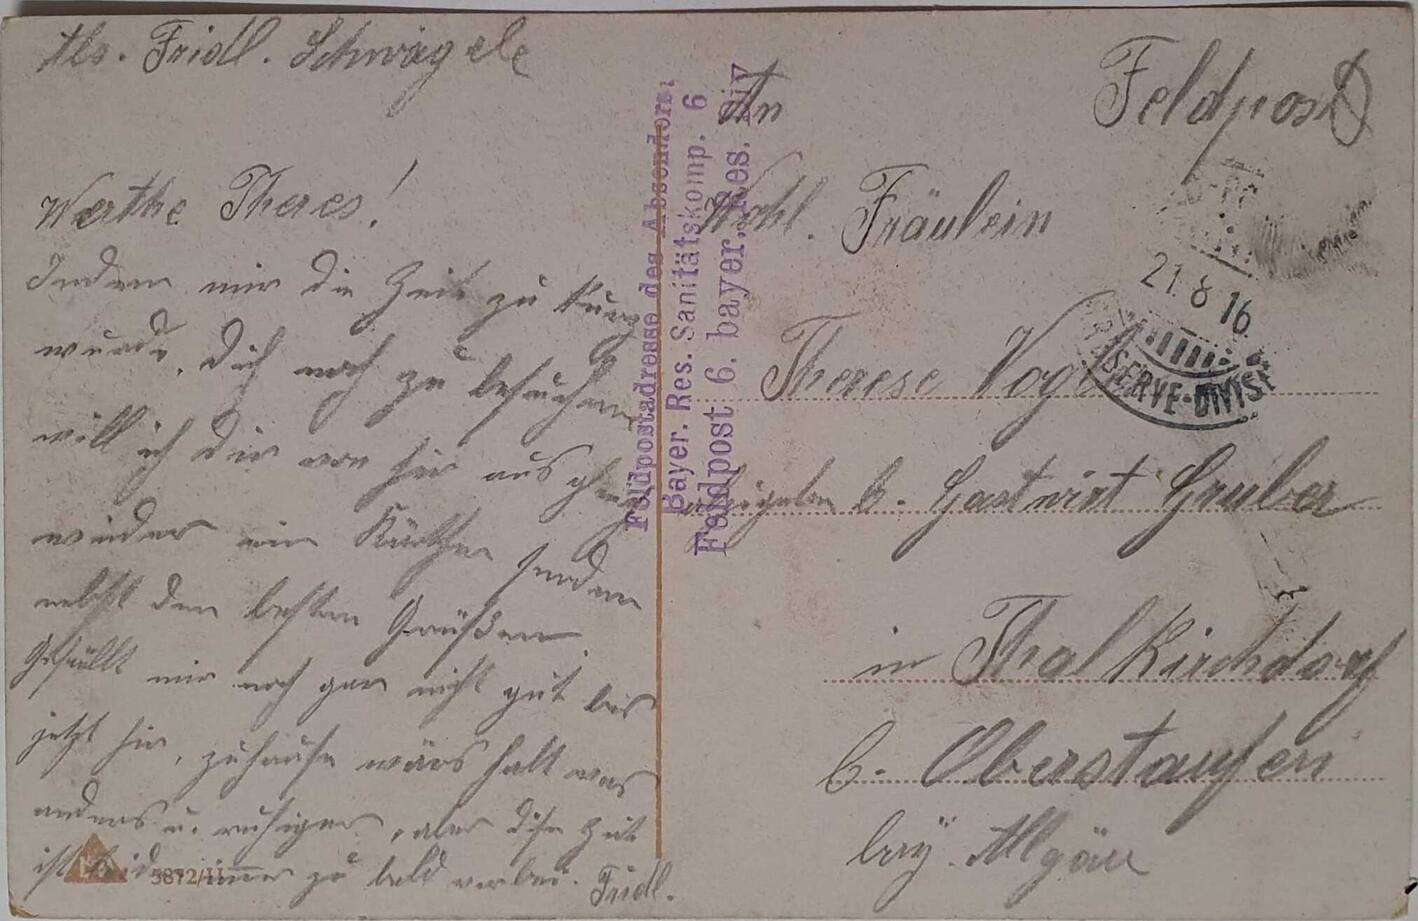 Abs. Fridl. Schwägele
Werthe Theres!
Indem mir die Zeit zu kurz
wurde, Dich noch zu besuchen
will ich Dir von hir aus gleich
wieder ein Kärtchen senden
nebst den besten Grüßen.
Gefällt mir noch gar nicht gut bis
jetzt hir, zuhause wärs halt was
anders u. ruhiger, aber diese Zeit
ist leider immer zu bald vorbei. Fridl.
5872/II
Feldpostadresse des Absenders:
Bayer. Res. Sanitätskomp. 6
Feldpost 6. bayer. Res. Div
Feldpost
An
Wohl. Fräulein
21.8.16.
RESERVE-DIVISI
Therese Vogel
b. Gastwirt Gruber
in Thalkirchdorf
b. Oberstaufen
bay. Allgäu